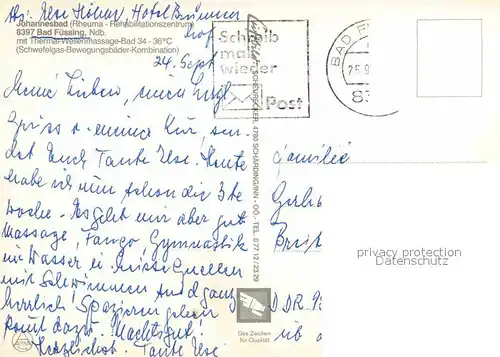 Abs: Ilse
Hotel Brunnen
hof
Johannesbad (Rheuma - Rehabilitationszentrum)
8397 Bad Füssing, Ndb.
mit Thermal-Wellenmassage-Bad 34 - 36°C
(Schwefelgas-Bewegungsbäder-Kombination)
24. Sept
Schreib
mal
wieder
Post
BAD F
25.9
83
Meine Lieben, einen
Gruss v. meiner Kur, sen-
det Euch Tante Ilse. Heute
habe ich nun schon die 3te
Woche. Es geht mir aber gut
Massage, Fango Gymnastik
im Wasser
mit Schwimmen und ganz
herrlich! Spazieren gehen
kommt dazu. Machts gut!
Herzlichst. Tante Ilse
SCHEURECKER, 4780 SCHÄRDING/INN - OÖ. - TEL. 0 77 12 / 23 29
Familie
Gerha
DDR. 95
Das Zeichen
für Qualität
privacy protection
Datenschutz